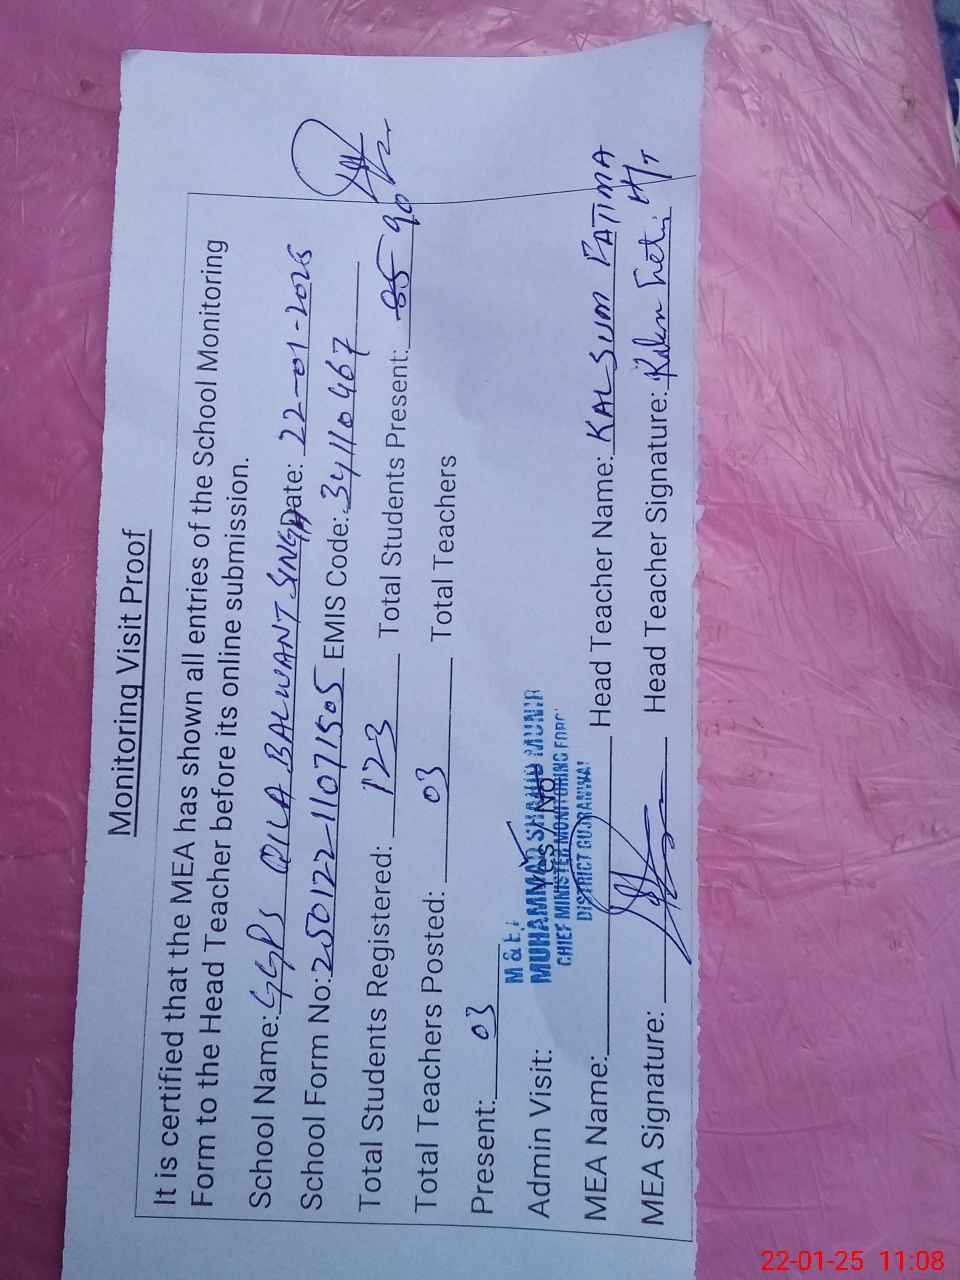 Monitoring Visit Proof
It is certified that the MEA has shown all entries of the School Monitoring
Form to the Head Teacher before its online submission.
School Name: GGPS QILA BALWANT SINGH Date: 22-01-2025
School Form No: 250122-11071505 EMIS Code: 34110467
Total Students Registered: 123 Total Students Present: 85 90
Total Teachers Posted: 03 Total Teachers
Present: 03
M & E
Admin Visit: Yes / No
MUHAMMAD SHAHID MUNIR
CHIEF MINISTER MONITORING FORC
DISTRICT GUJRANWAL
MEA Name: Head Teacher Name: KALSUM FATIMA
MEA Signature: Head Teacher Signature: H/T
22-01-25 11:08